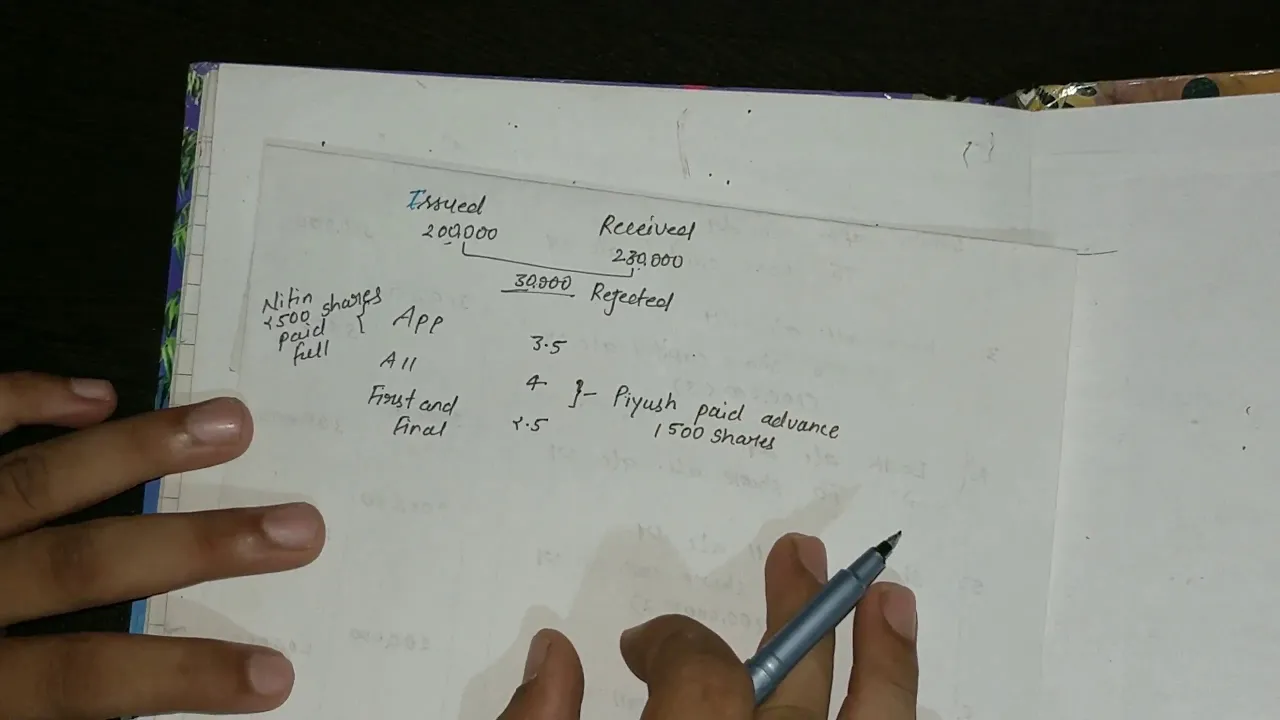 Issued
200,000
Received
230,000
30,000 Rejected
Nitin
2500 shares
paid
full
App 3.5
All 4
First and
Final 2.5
Piyush paid advance
1500 shares